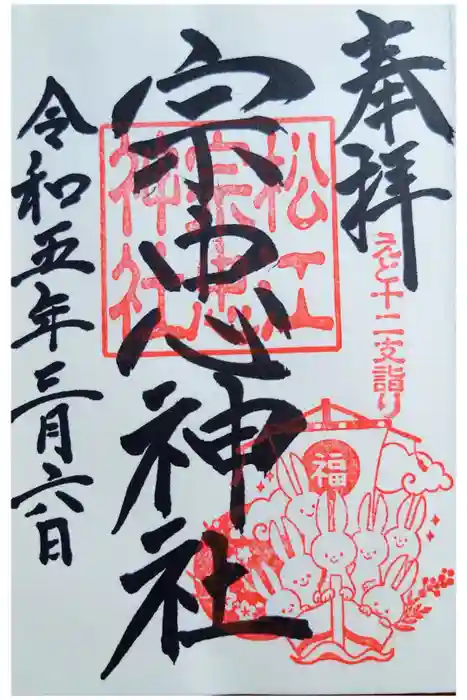 奉拝
えど十二支詣り
福
松江
宗忠
神社
宗忠神社
令和五年三月六日